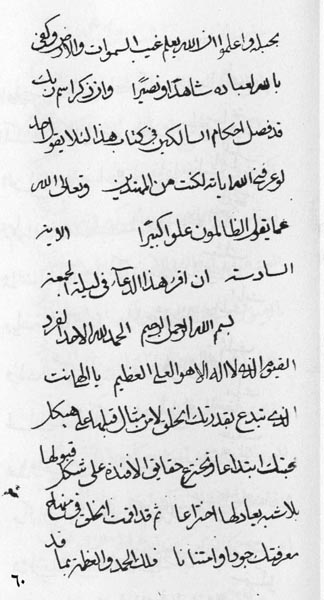 بحبله واعلموا ان الله يعلم غيب السموات والارض وكفى
بالله لعباده شاهدا ونصيرا وان ذكر اسم ربك
قد فصل احكام السالكين في كتاب هذا لئلا يقول احد
لو عرفني الله اياته لكنت من المهتدين وتعالى الله
عما يقول الظالمون علوا كبيرا الاية
السادسة ان اقرء هذا الدعاء في ليلة الجمعة
بسم الله الرحمن الرحيم الحمد لله الاحد الفرد
القيوم الذي لا اله الا هو العلي العظيم يا الهي انت
الذي تبدع بقدرتك الخلق لا من مثال قبلها على هيكل
محبتك ابتداعا وتخترع حقايق الافئدة على شكل قبولها
بلا شبه يعادلها اختراعا ثم قد اقمت الخلق في منهاج
معرفتك جودا وامتنانا فلك الحمد والعظمة بما قد
٦٠